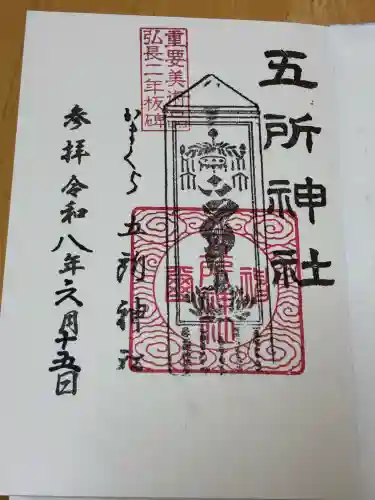 五所神社
重要美術品
弘長二年板碑
かまくら 五所神社
参拝令和八年六月十五日